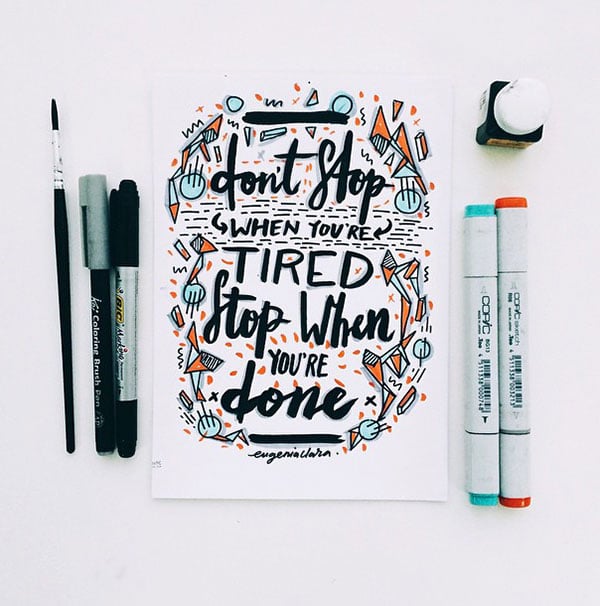 don't Stop
WHEN YOU'RE
TIRED
Stop When
YOU'RE
done
eugeniaclara.
Coloring Brush Pen
BIC
Marking
COPIC
COPIC sketch